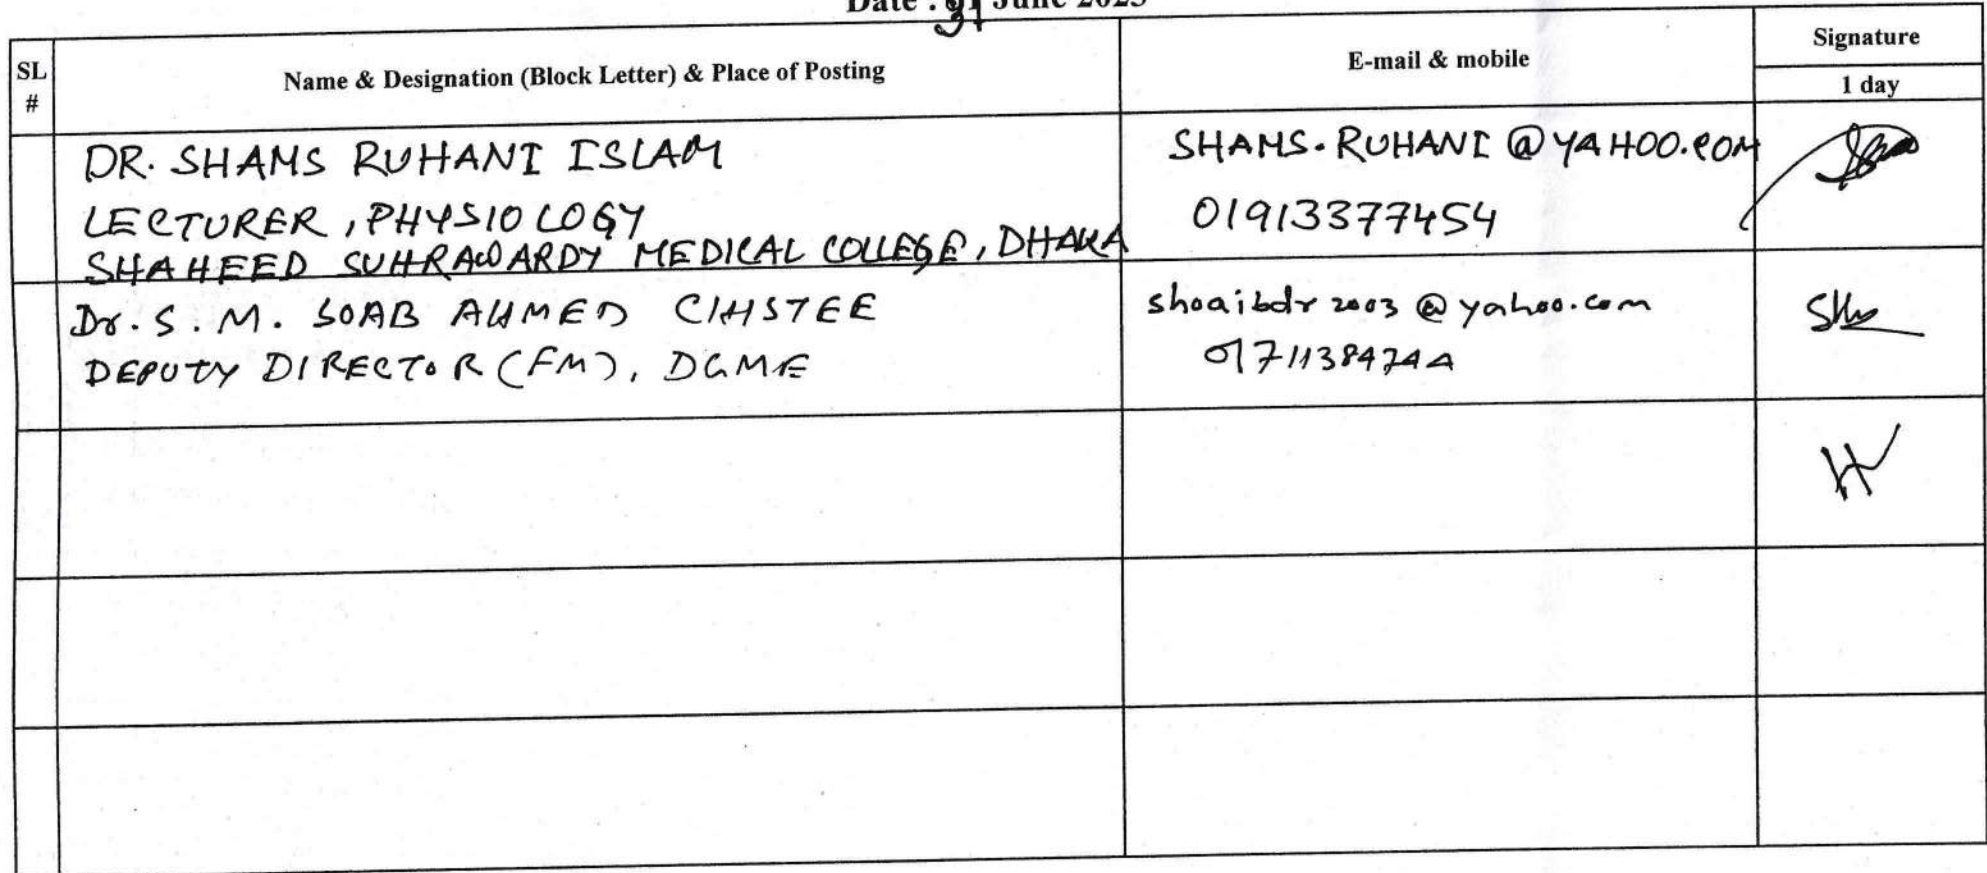 Date : June 2023
SL
#
Name & Designation (Block Letter) & Place of Posting
E-mail & mobile
Signature
1 day
DR. SHAMS RUHANI ISLAM
LECTURER, PHYSIOLOGY
SHAHEED SUHRAWARDY MEDICAL COLLEGE, DHAKA
SHAMS.RUHANI@YAHOO.COM
01913377454
Dr. S. M. SOAB AHMED CIHSTEE
DEPUTY DIRECTOR (FM), DGME
shoaibdr2003@yahoo.com